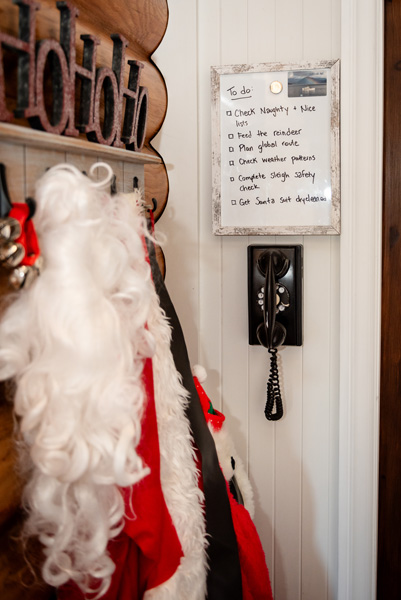 HoHoHo
To do
Check Naughty + Nice
lists
Feed the reindeer
Plan global route
Check weather patterns
Complete sleigh safety
check
Get Santa suit drycleaned